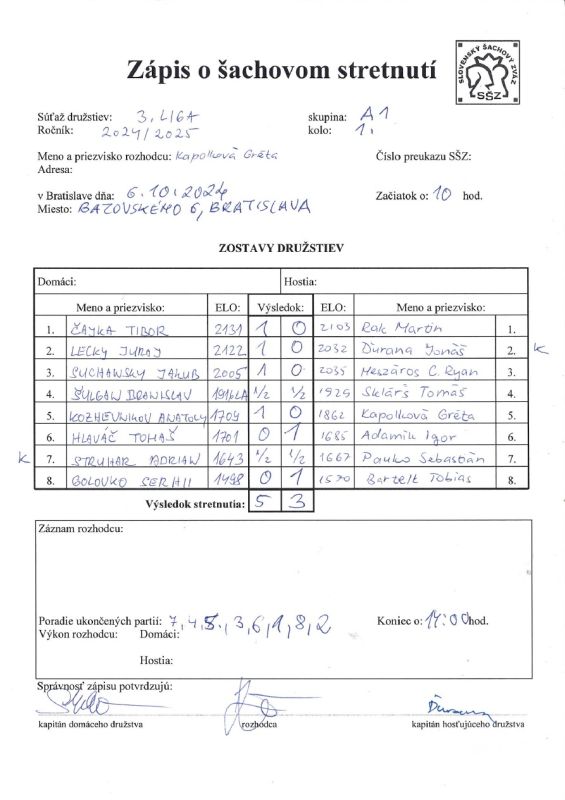 Zápis o šachovom stretnutí
SLOVENSKÝ ŠACHOVÝ ZVÄZ
SŠZ
Súťaž družstiev: 3. LIGA skupina: A1
Ročník: 2024/2025 kolo: 1.
Meno a priezvisko rozhodcu: Kapolková Gréta Číslo preukazu SŠZ:
Adresa:
v Bratislave dňa: 6.10.2024 Začiatok o: 10 hod.
Miesto: BAZOVSKÉHO 6, BRATISLAVA
ZOSTAVY DRUŽSTIEV
Domáci: Hostia:
Meno a priezvisko: ELO: Výsledok: ELO: Meno a priezvisko:
1. ČAJKA TIBOR 2131 1 0 2103 Rak Martin 1.
2. LECKY JURAJ 2122 1 0 2032 Ďurana Jonáš 2. K
3. SUCHAWSKY JAKUB 2005 1 0 2035 Meszáros C. Ryan 3.
4. BRANISLAV 1/2 1/2 1929 Sklárš Tomáš 4.
5. KOZHEVNIKOV ANATOLY 1709 1 0 1862 Kapolková Gréta 5.
6. HLAVÁČ TOMAŠ 1701 0 1 1685 Adamik Igor 6.
K 7. STRUHAR ADRIAN 1643 1/2 1/2 1667 Pauko Sebastián 7.
8. GOLOVKO SERHII 1498 0 1 1570 Bartelt Tobias 8.
Výsledok stretnutia: 5 3
Záznam rozhodcu:
Poradie ukončených partií: 7,4,5.,3,6,1,8,2 Koniec o: 14:00 hod.
Výkon rozhodcu: Domáci:
Hostia:
Správnosť zápisu potvrdzujú:
kapitán domáceho družstva rozhodca kapitán hosťujúceho družstva